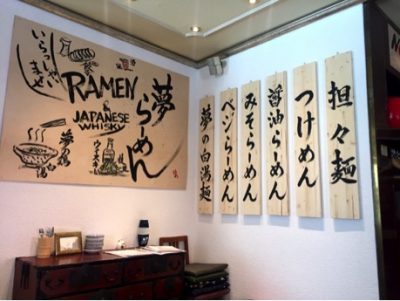 いらっしゃい
ませ
RAMEN
&
JAPANESE
WHISKY
夢らーめん
ウイスキー
担々麺
つけめん
醤油らーめん
みそらーめん
ベジらーめん
夢の白湯麺